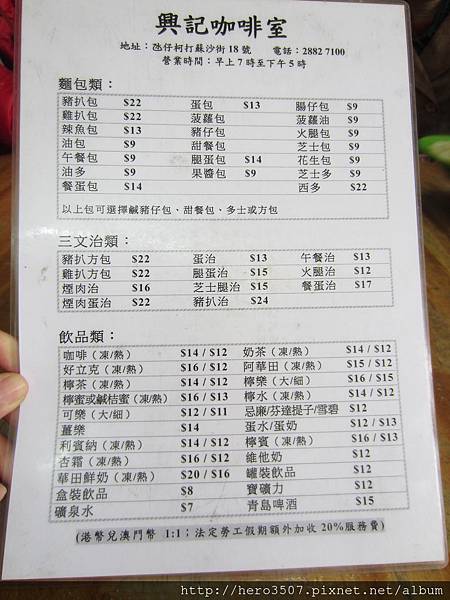 興記咖啡室
地址：氹仔柯打蘇沙街18號 電話：2882 7100
營業時間：早上7時至下午5時
麵包類：
豬扒包 $22 蛋包 $13 腸仔包 $9
雞扒包 $22 菠蘿包 菠蘿油 $9
辣魚包 $13 豬仔包 火腿包 $9
油包 $9 甜餐包 芝士包 $9
午餐包 $9 腿蛋包 $14 花生包 $9
油多 $9 果醬包 $9 芝士多 $9
餐蛋包 $14 西多 $22
以上包可選擇鹹豬仔包、甜餐包、多士或方包
三文治類：
豬扒方包 $22 蛋治 $13 午餐治 $13
雞扒方包 $22 腿蛋治 $15 火腿治 $12
煙肉治 $16 芝士腿治 $15 餐蛋治 $17
煙肉蛋治 $22 豬扒治 $24
飲品類：
咖啡（凍/熱） $14 / $12 奶茶（凍/熱） $14 / $12
好立克（凍/熱） $16 / $12 阿華田（凍/熱） $15 / $12
檸茶（凍/熱） $14 / $12 檸樂（大/細） $16 / $15
檸蜜或鹹桔蜜（凍/熱） $16 / $13 檸水（凍/熱） $14 / $12
可樂（大/細） $12 / $11 忌廉/芬達提子/雪碧 $12
薑樂 $14 蛋水/蛋奶 $12 / $13
利賓納（凍/熱） $14 / $12 檸賓（凍/熱） $16 / $13
杏霜（凍/熱） $14 / $12 維他奶 $12
華田鮮奶（凍/熱） $20 / $16 罐裝飲品 $12
盒裝飲品 $8 寶礦力 $12
礦泉水 $7 青島啤酒 $15
(港幣兌澳門幣 1:1；法定勞工假期額外加收20%服務費)
http://hero3507.pixnet.net/album